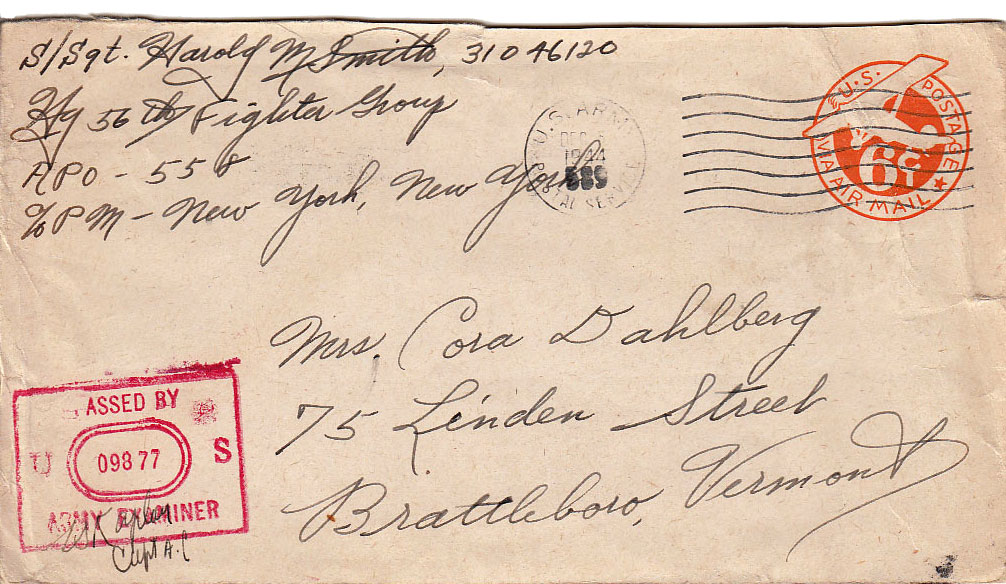 S/Sgt. Harold M Smith, 31046120
Hq 56th Fighter Group
APO - 558
c/o PM - New York, New York
U.S. ARMY
DEC
1944
POSTAL SERVICE
589
U.S. POSTAGE
6¢
VIA AIR MAIL
Mrs. Cora Dahlberg
75 Linden Street
Brattleboro, Vermont
ASSED BY
U 09877 S
ARMY EXAMINER
Capt A.C